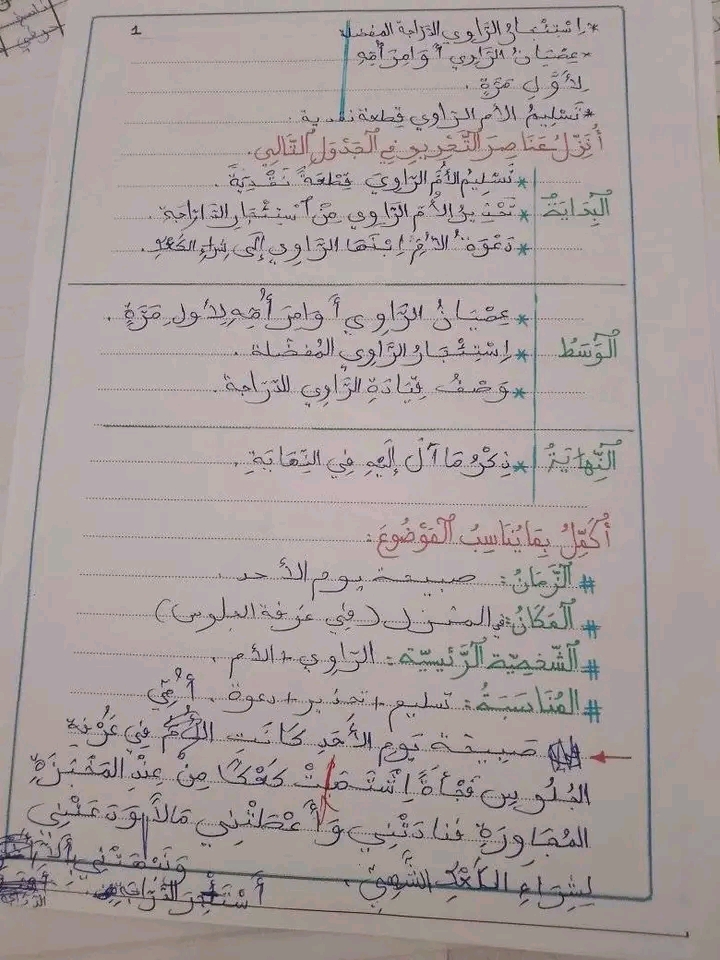 1
* اِسْتِئْجَارُ الرَّاوِي الدَّرَّاجَةَ المُفَضَّلَةَ
* عِصْيَانُ الرَّاوِي أَوَامِرَ أُمِّهِ
لِأَوَّلِ مَرَّةٍ.
* تَسْلِيمُ الأُمِّ الرَّاوِي قِطْعَةً نَقْدِيَّةً.
أُنَزِّلُ عَنَاصِرَ التَّحْرِيرِ فِي الْجَدْوَلِ التَّالِي.
* تَسْلِيمُ الأُمِّ الرَّاوِيَ قِطْعَةً نَقْدِيَّةً.
الْبِدَايَةُ * تَحْذِيرُ الأُمِّ الرَّاوِي مِنْ اسْتِئْجَارِ الدَّرَّاجَةِ.
* دَعْوَةُ الأُمِّ اِبْنَهَا الرَّاوِي إِلَى شِرَاءِ الكَعْكِ.
* عِصْيَانُ الرَّاوِي أَوَامِرَ أُمِّهِ لِأَوَّلِ مَرَّةٍ.
الْوَسَطُ * اِسْتِئْجَارُ الرَّاوِي المُفَضَّلَة.
* وَصْفُ قِيَادَةِ الرَّاوِي الدَّرَّاجَة.
النِّهَايَةُ * ذِكْرُ مَا آلَ إِلَيْهِ فِي النِّهَايَةِ.
أُكَمِّلُ بِمَا يُنَاسِبُ الْمَوْضُوعَ:
# الزَّمَانُ: صبيحة يوم الأحد.
# الْمَكَانُ: في المنزل (في غرفة الجلوس)
# الشَّخْصِيَّة الرَّئِيسِيَّة: الرّاوي + الأم.
# الْمُنَاسَبَةُ: تسليم + تحذير + دعوة. أُمِّي
صَبِيحَةَ يَوْمِ الأَحَدِ كَانَتِ الأُمُّ فِي غُرْفَةِ
الجُلُوسِ فَجْأَةً اِشْتَهَتْ كَعْكًا مِنْ عِنْدِ المَخْبَزَةِ
المُجَاوِرَةِ فَنَادَتْنِي وَأَعْطَتْنِي مَالاً وَدَعَتْنِي
لِشِرَاءِ الكَعْكِ الشَّهِيِّ.